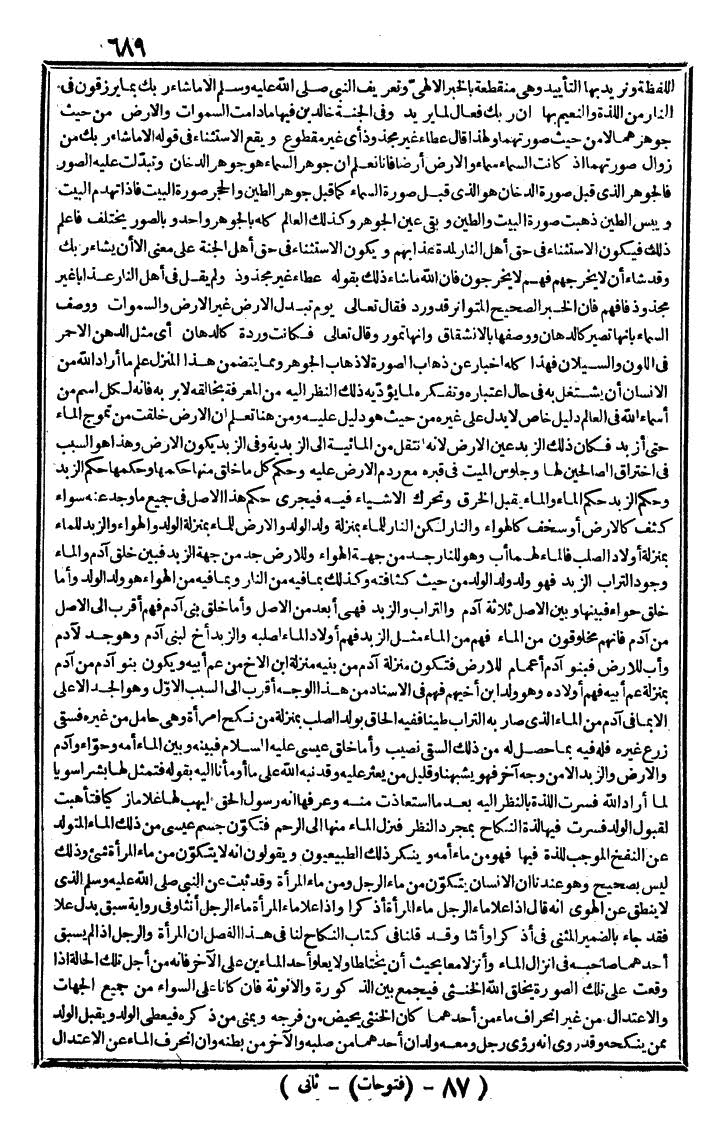 ٦٨٩
اللفظة ونريد بها التأبيد وهى منقطعة بالخبر الالهى وتعريف النبى صلى الله عليه وسلم الا ماشاء ربك بما يرزقون فى
النار من اللذة والنعيم بها ان ربك فعال لما يريد وفى الجنة خالدين فيها مادامت السموات والارض من حيث
جوهرهما لا من حيث صورتهما ولهذا قال عطاء غير مجذوذ أى غير مقطوع ويقع الاستثناء فى قوله الا ماشاء ربك من
زوال صورتهما اذ كانت السماء سماء والارض أرضا فانا نعلم ان جوهر السماء هو جوهر الدخان وتبدّلت عليه الصور
فالجوهر الذى قبل صورة الدخان هو الذى قبل صورة السماء كما قبل جوهر الطين والحجر صورة البيت فاذا تهدم البيت
ويبس الطين ذهبت صورة البيت والطين وبقى عين الجوهر وكذلك العالم كله بالجوهر واحد وبالصور يختلف فاعلم
ذلك فيكون الاستثناء فى حق أهل النار لمدة عذابهم ويكون الاستثناء فى حق أهل الجنة على معنى الا أن يشاء ربك
وقد شاء أن لا يخرجهم فهم لا يخرجون فان الله ماشاء ذلك بقوله عطاء غير مجذوذ ولم يقل فى أهل النار عذابا غير
مجذوذ فافهم فان الخبر الصحيح المتواتر قد ورد فقال تعالى يوم تبدل الارض غير الارض والسموات ووصف
السماء بانها تصير كالدهان ووصفها بالانشقاق وانها تمور وقال تعالى فكانت وردة كالدهان أى مثل الدهن الاحمر
فى اللون والسيلان فهذا كله اخبار عن ذهاب الصورة لا ذهاب الجوهر ومما يتضمن هذا المنزل علم ما أراد الله من
الانسان أن يشتغل به فى حال اعتباره وتفكره لما يؤدّيه ذلك النظر اليه من المعرفة بخالقه لا بر به فانه لكل اسم من
أسماء الله فى العالم دليل خاص لا يدل على غيره من حيث هو دليل عليه ومن هنا تعلم ان الارض خلقت من تموج الماء
حتى أزبد فكان ذلك الزبد عين الارض لانه انتقل من المائية الى الزبدية وفى الزبد يكون الارض وهذا هو السبب
فى اختراق الصالحين لها وجلوس الميت فى قبره مع ردم الارض عليه وحكم كل ما خلق منها حكمها وحكمها حكم الزبد
وحكم الزبد حكم الماء والماء يقبل الخرق وتحرك الاشياء فيه فيجرى حكم هذا الاصل فى جميع ما وجد عنه سواء
كثف كالارض أو سخف كالهواء والنار لكن النار للماء بمنزلة ولد الولد والارض للماء بمنزلة الولد والهواء والزبد للماء
بمنزلة أولاد الصلب فالماء لهما أب وهو للنار جد من جهة الهواء وللارض جد من جهة الزبد فبين خلق آدم والماء
وجود التراب الزبد فهو ولد ولد الولد من حيث كثافته وكذلك بمافيه من النار وبمافيه من الهواء هو ولد الولد وأما
خلق حواء فبينها وبين الاصل ثلاثة آدم والتراب والزبد فهى أبعد من الاصل وأما خلق بنى آدم فهم أقرب الى الاصل
من آدم فانهم مخلوقون من الماء فهم من الماء مثل الزبد فهم أولاد الماء لصلبه والزبد أخ لبنى آدم وهو جد لآدم
وأب للارض فبنو آدم أعمام للارض فتكون منزلة آدم من بنيه منزلة ابن الاخ من عم أبيه ويكون بنو آدم من آدم
بمنزلة عم أبيه فهم أولاده وهو ولد ابن أخيهم فهم فى الاسناد من هذا الوجه أقرب الى السبب الاوّل وهو الجد الاعلى
الا بمافى آدم من الماء الذى صار به التراب طينا ففيه الحاق بولد الصلب بمنزلة من نكح امرأة وهى حامل من غيره فسقى
زرع غيره فله فيه بما حصل له من ذلك السقى نصيب وأما خلق عيسى عليه السلام فبينه وبين الماء أمه وحوّاء وآدم
والارض والزبد الا من وجه آخر فهو يشبهنا وقليل من يعثر عليه وقد نبه الله على ما أومأنا اليه بقوله فتمثل لها بشرا سويا
لما أراد الله فسرت اللذة بالنظر اليه بعد ما استعاذت منه وعرفها انه رسول الحق ليهب لها غلاما زكيا فتأهبت
لقبول الولد فسرت فيها لذة النكاح بمجرد النظر فنزل الماء منها الى الرحم فتكوّن جسم عيسى من ذلك الماء المتولد
عن النفخ الموجب للذة فيها فهو من ماء أمه وينكر ذلك الطبيعيون ويقولون انه لا يتكوّن من ماء المرأة شئ وذلك
ليس بصحيح وهو عندنا ان الانسان يتكوّن من ماء الرجل ومن ماء المرأة وقد ثبت عن النبى صلى الله عليه وسلم الذى
لا ينطق عن الهوى انه قال اذا علا ماء الرجل ماء المرأة أذكرا واذا علا ماء المرأة ماء الرجل أنثا وفى رواية سبق بدل علا
فقد جاء بالضمير المثنى فى أذكرا وأنثا وقد قلنا فى كتاب النكاح لنا فى هذا الفصل ان المرأة والرجل اذا لم يسبق
أحدهما صاحبه فى انزال الماء وأنزلا معا بحيث أن يختلطا ولا يعلو أحد الماءين على الآخر فانه من أجل تلك الحالة اذا
وقعت على تلك الصورة يخلق الله الخنثى فيجمع بين الذكورة والانوثة فان كانا على السواء من جميع الجهات
والاعتدال من غير انحراف ماء من أحدهما كان الخنثى يحيض من فرجه ويمنى من ذكره فيعطى الولد ويقبل الولد
ممن ينكحه وقد روى انه رؤى رجل ومعه ولدان أحدهما من صلبه والآخر من بطنه وان انحرف الماء عن الاعتدال
( ٨٧ - (فتوحات) - ثانى )